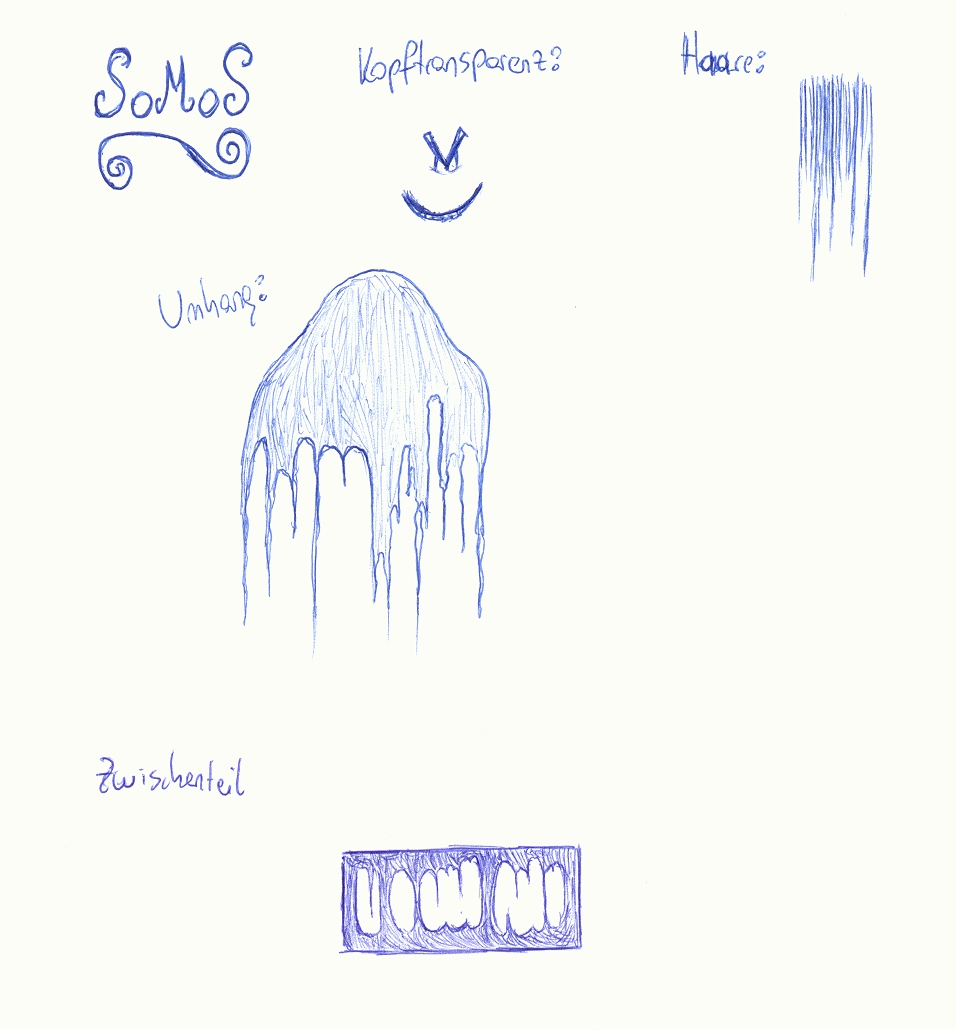 SoMoS
Kopftransparenz:
Haare:
Umhang:
Zwischenteil